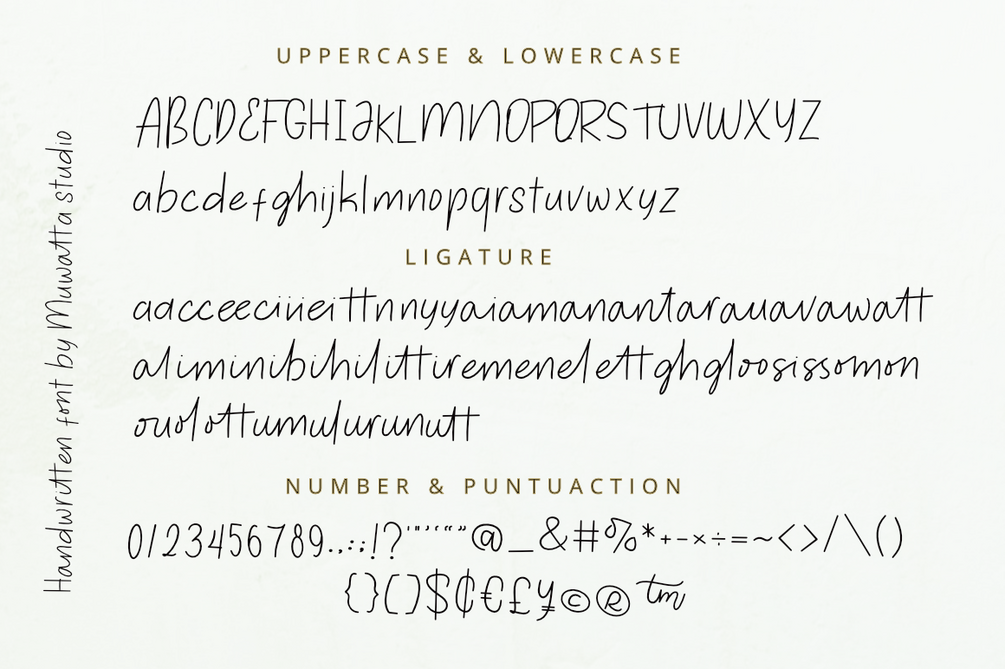 UPPERCASE & LOWERCASE
ABCDEFGHIJKLMNOPQRSTUVWXYZ
abcdefghijklmnopqrstuvwxyz
LIGATURE
aacceeciiieittnnyyaiamanantarauavawatt
aliminibihilittiremenelettghgloosissomon
ouolottumulurunutt
NUMBER & PUNTUACTION
0123456789.,:;!?'"‚‘’“”@_&#%*+-×÷=~<>/\()
{}[]$¢€£¥©®™
Handwritten font by Muwatta studio